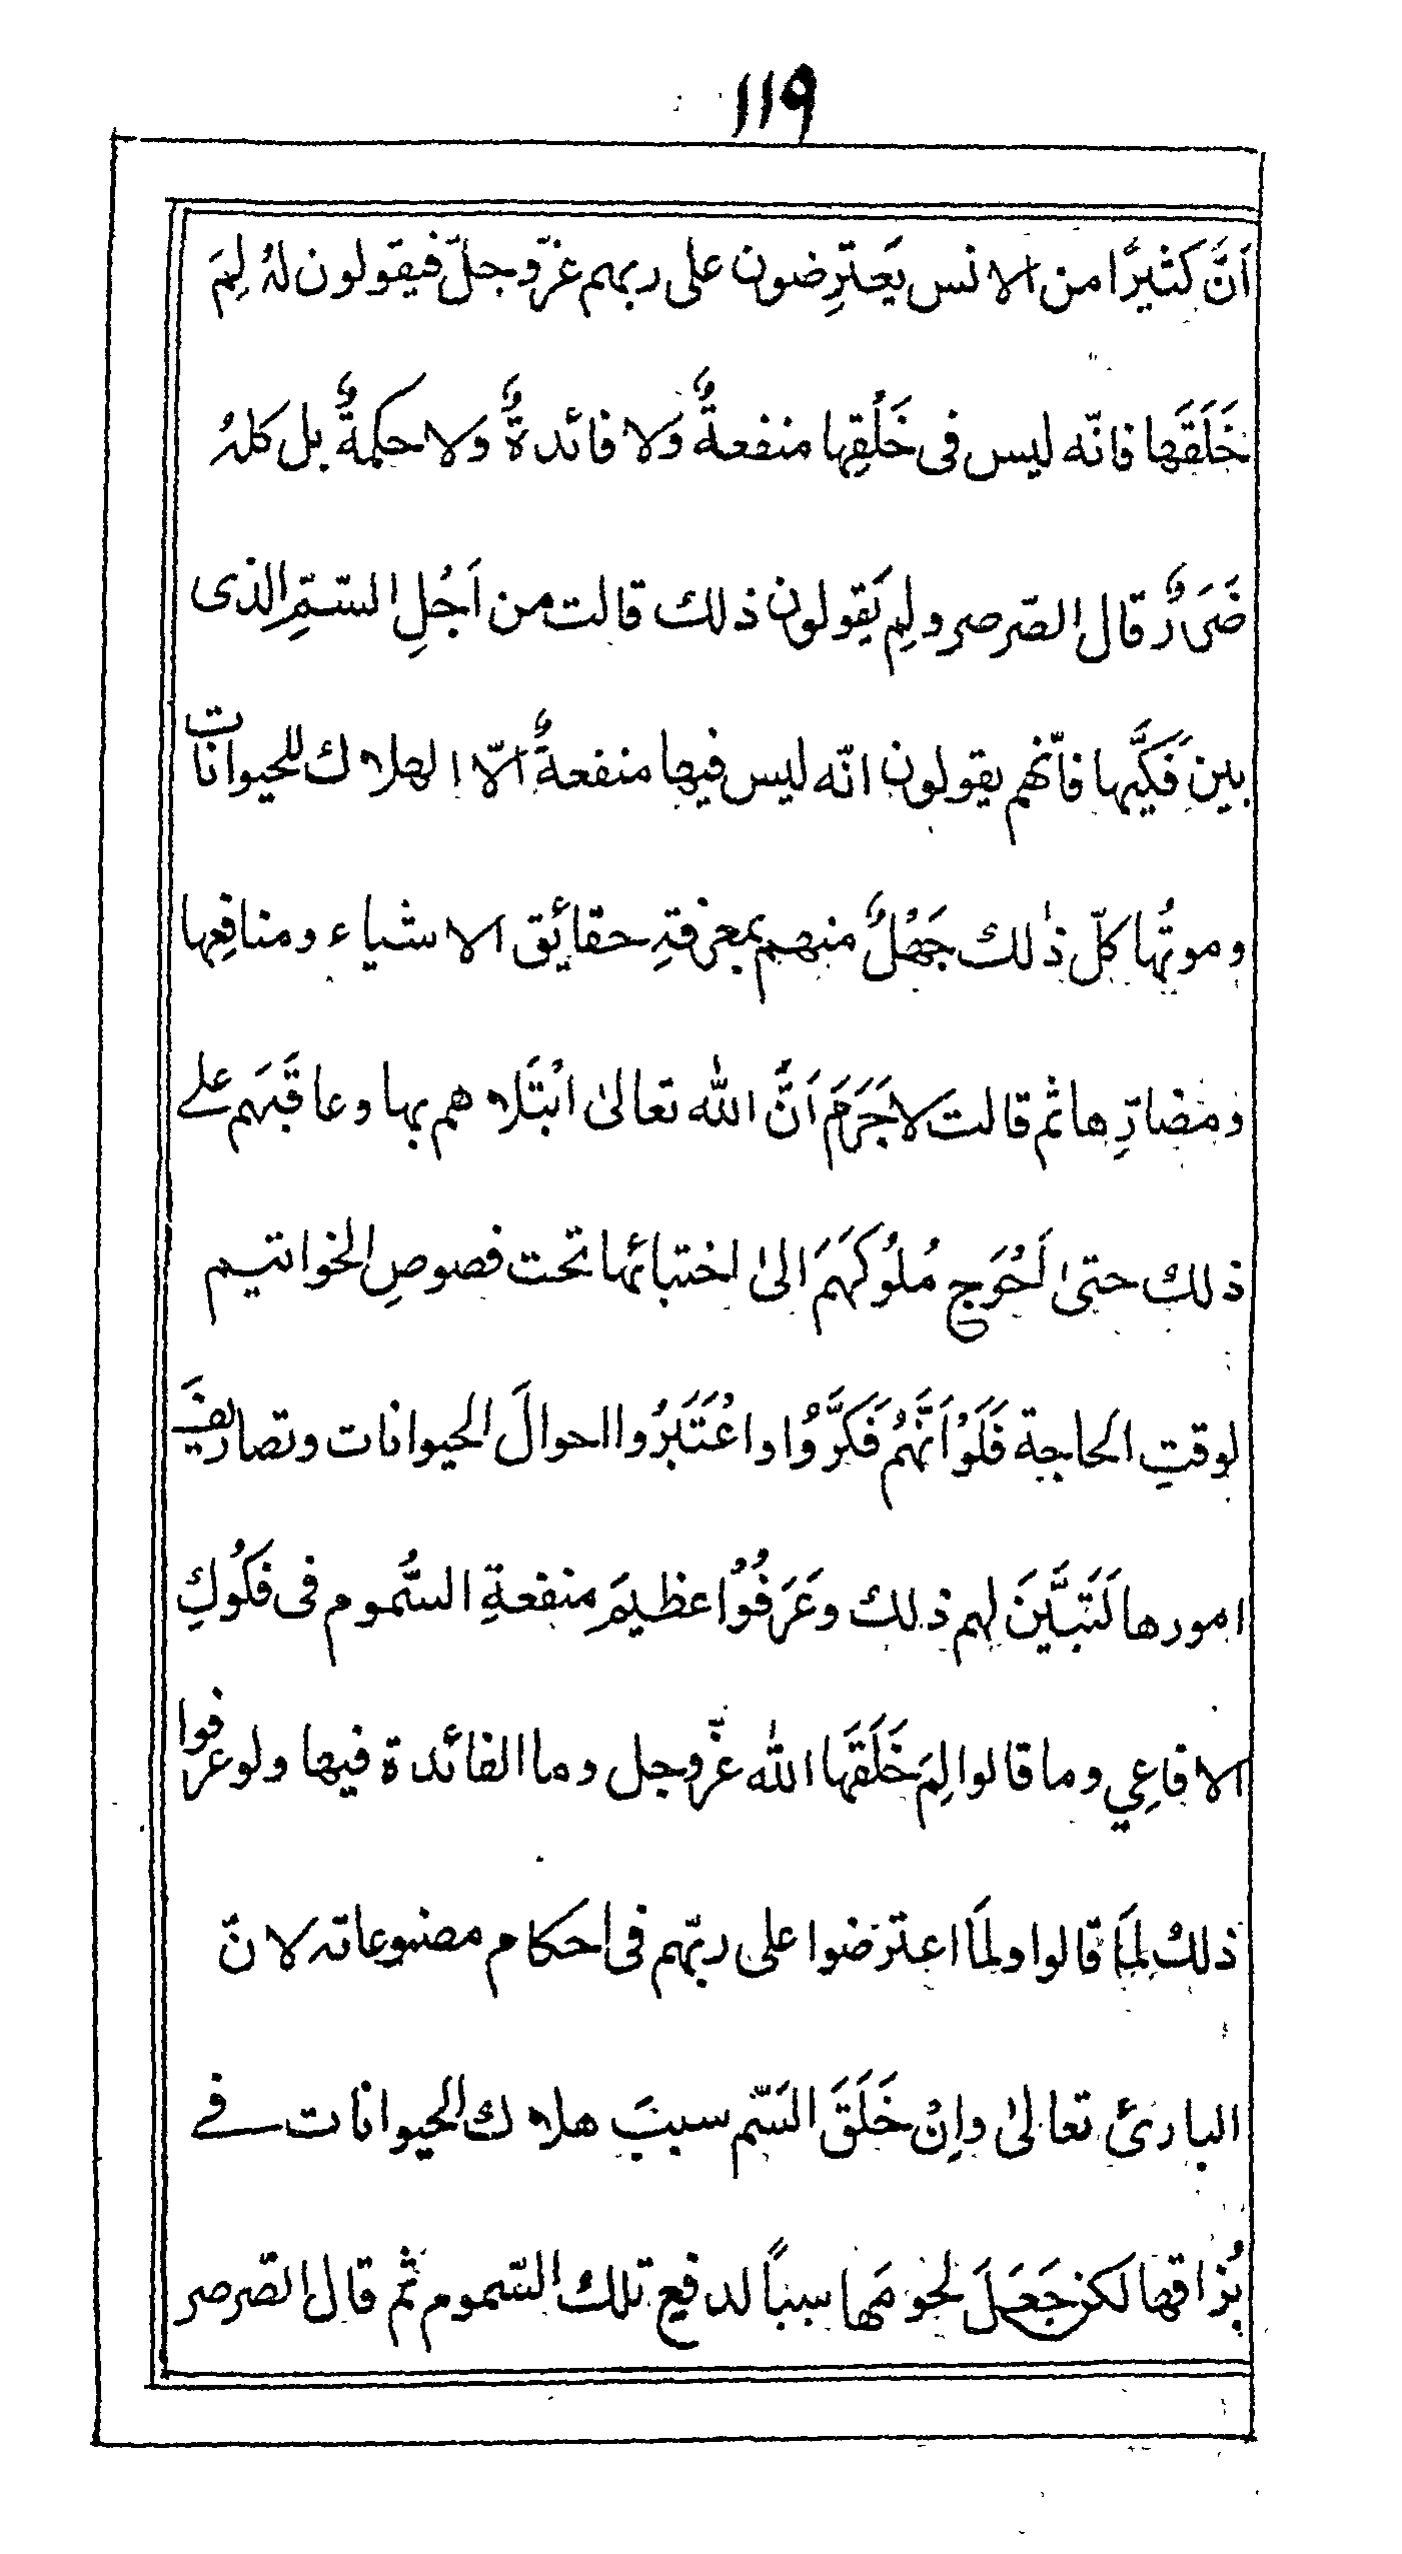 ١١٩
اَنَّ كَثيرًا من الانس يَعترِضون على ربهم عزّوجلّ فيقولون لهُ لِمَ
خَلَقَها فانّه ليس فى خَلْقِها منفعةٌ ولا فائدةٌ ولا حكمةٌ بل كلهُ
ضَررٌ قال الصّرصر ولِم يَقولون ذلك قالت من اَجْلِ السّمِّ الذى
بين فَكَّيها فانّهم يقولون انّه ليس فيها منفعةٌ الّا الهلاك للحيوانات
وموتُها كلّ ذٰلك جَهْلٌ منهم بمعرفةِ حقائق الاشياء ومنافِعِها
ومضارِّها ثم قالت لاجَرَمَ اَنَّ الله تعالىٰ ابْتَلاهم بها وعاقَبَهم على
ذلك حتىٰ اَحْوَج مُلوُكَهَم الىٰ اختبائها تحت فصوصِ الخواتيم
لوقتِ الحاجة فَلَوْ اَنَّهُم فَكَّرُوا واعْتَبَرُوا احوالَ الحيوانات وتصاريفَ
امورها لَتَبَيَّنَ لهم ذلك وعَرَفُوْا عظيمَ منفعةِ السُّموم فى فكُوكِ
الافاعِي وما قالوا لِمَ خَلَقَها الله عزّوجل وما الفائدة فيها ولو عرفوا
ذلك لِمَا قالوا ولمَا اعترضوا على ربّهم فى احكام مصنوعاته لانّ
البارئ تعالىٰ وإنْ خَلَقَ السَّم سببَ هلاك الحيوانات فى
بُزاقها لكن جَعَلَ لحومَها سبباً لدفع تلك السّموم ثم قال الصّرصر